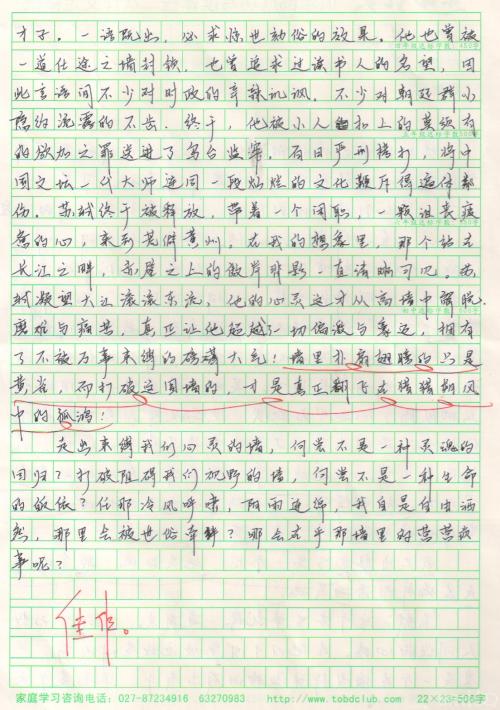 才子。一语既出，必求惊世动俗的效果。他也曾被
四年级达标字数：450字
一道仕途之墙封锁，也曾追求过读书人的名望，因
此言语间不少对时政的辛辣讥讽。不少对朝廷群小
隐约流露的不齿。终于，他被小人扣上的莫须有
五年级达标字数500字
的欲加之罪送进了乌台监牢，百日严刑拷打，将中
国文坛一代大师连同一段灿烂的文化鞭斥得遍体都
伤。苏轼终于被释放，带着一个闲职，一颗沮丧疲
惫的心，来到荒僻黄州。在我的想象里，那个站在
长江之畔，赤壁之上的傲岸非影一直清晰可见。苏
轼凝望大江滚滚东流，他的心灵这才从高墙中解脱。
磨难与痛苦，真正让他超越了一切偏激与豪迈，拥有
了不被万事束缚的磅礴大气！墙里扑扇翅膀的只是
黄雀，而打破这围墙的，才是真正翻飞在猎猎朔风
中的孤鸿！
走出束缚我们心灵的墙，何尝不是一种灵魂的
回归？打破阻碍我们视野的墙，何尝不是一种生命
的皈依？任那冷风呼啸，阴雨连绵，我自是自由洒
然，那里会被世俗牵绊？哪会在乎那墙里对营营
事呢？
佳作。
家庭学习咨询电话：027-87234916 63270983 http://www.tobdclub.com 22×23=506字